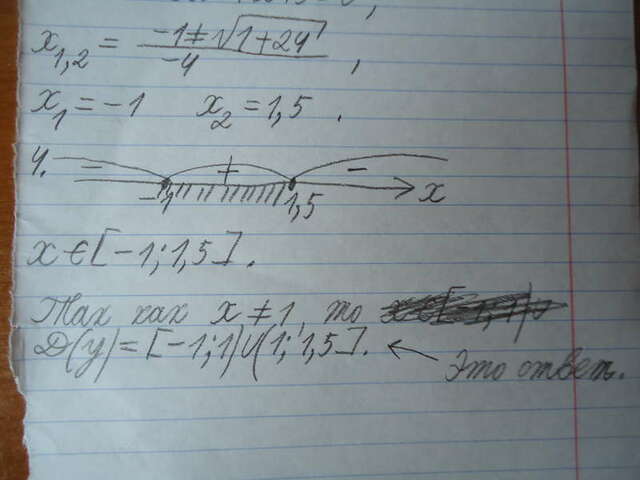 x₁,₂ = (-1 ± √(1+24)) / -4 ,
x₁ = -1 x₂ = 1,5 .
4. - + -
-1 1,5 x
x ∈ [-1; 1,5].
Так как x ≠ 1, то
D(y) = [-1; 1) ∪ (1; 1,5]. ← Это ответ.